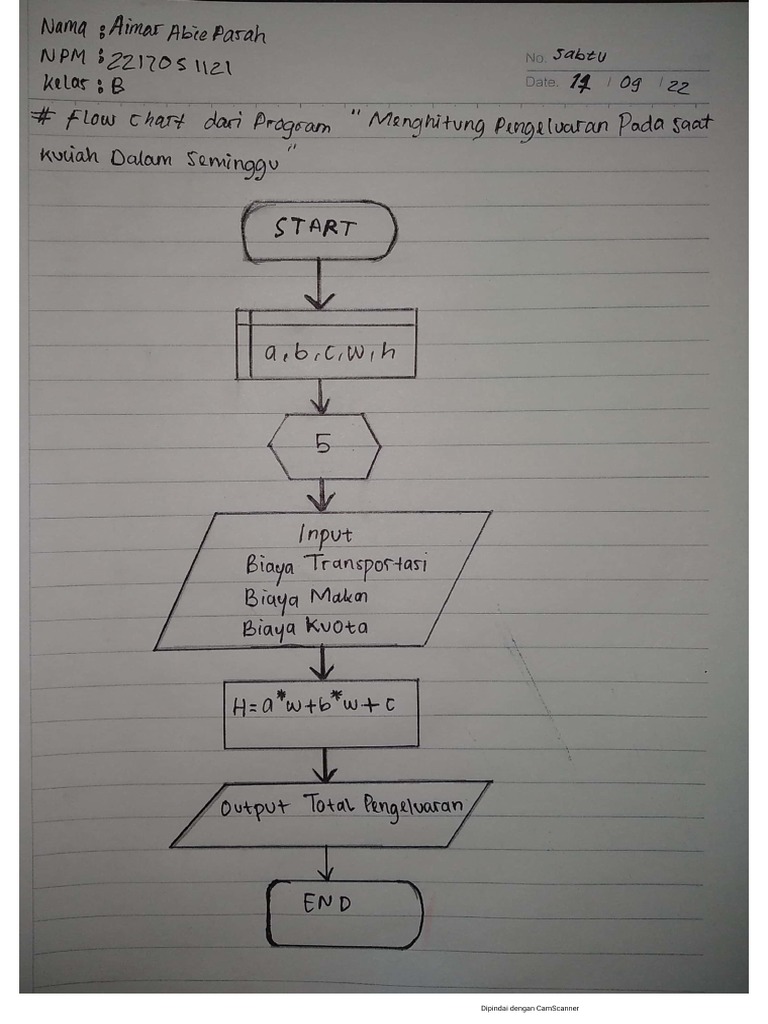 Nama : Aimar Abie Parah
NPM : 2217051121
Kelas : B
No. Sabtu
Date. 17 / 09 / 22
# Flow Chart dari Program " Menghitung Pengeluaran Pada Saat
Kuliah Dalam Seminggu "
START
a, b, c, w, h
5
Input
Biaya Transportasi
Biaya Makan
Biaya Kuota
H = a * w + b * w + c
Output Total Pengeluaran
END
Dipindai dengan CamScanner